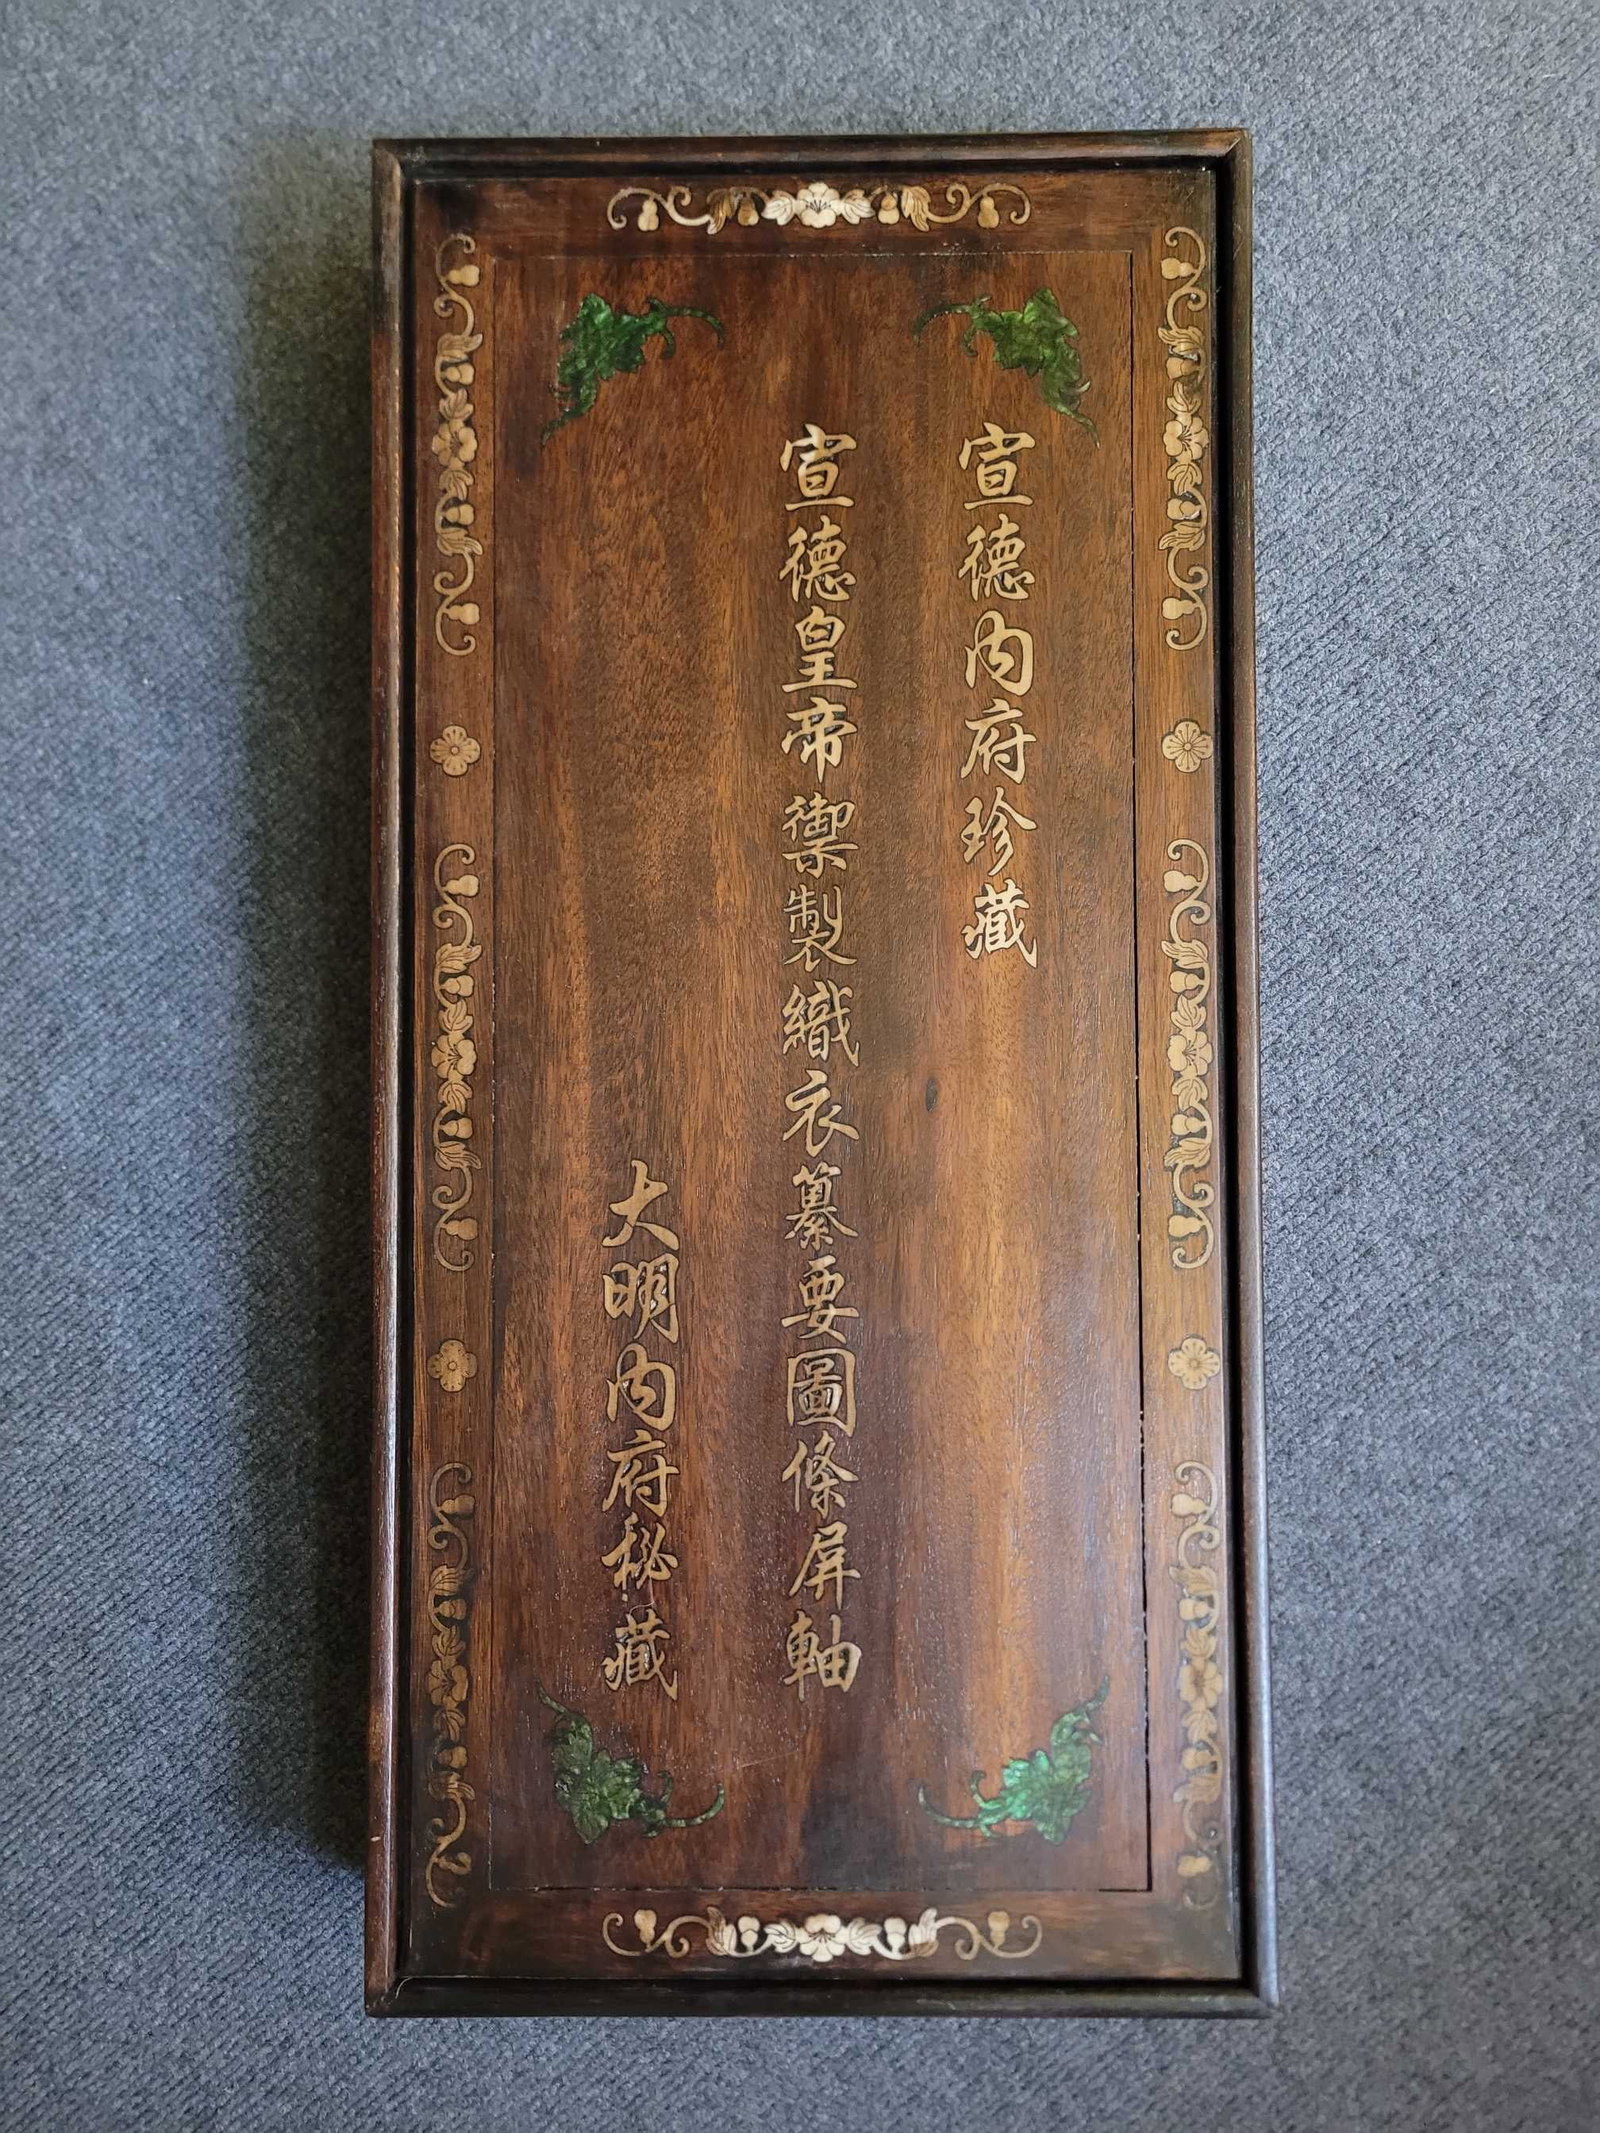 宣德内府珍藏
宣德皇帝禦製織衣纂要圖條屏軸
大明内府秘藏